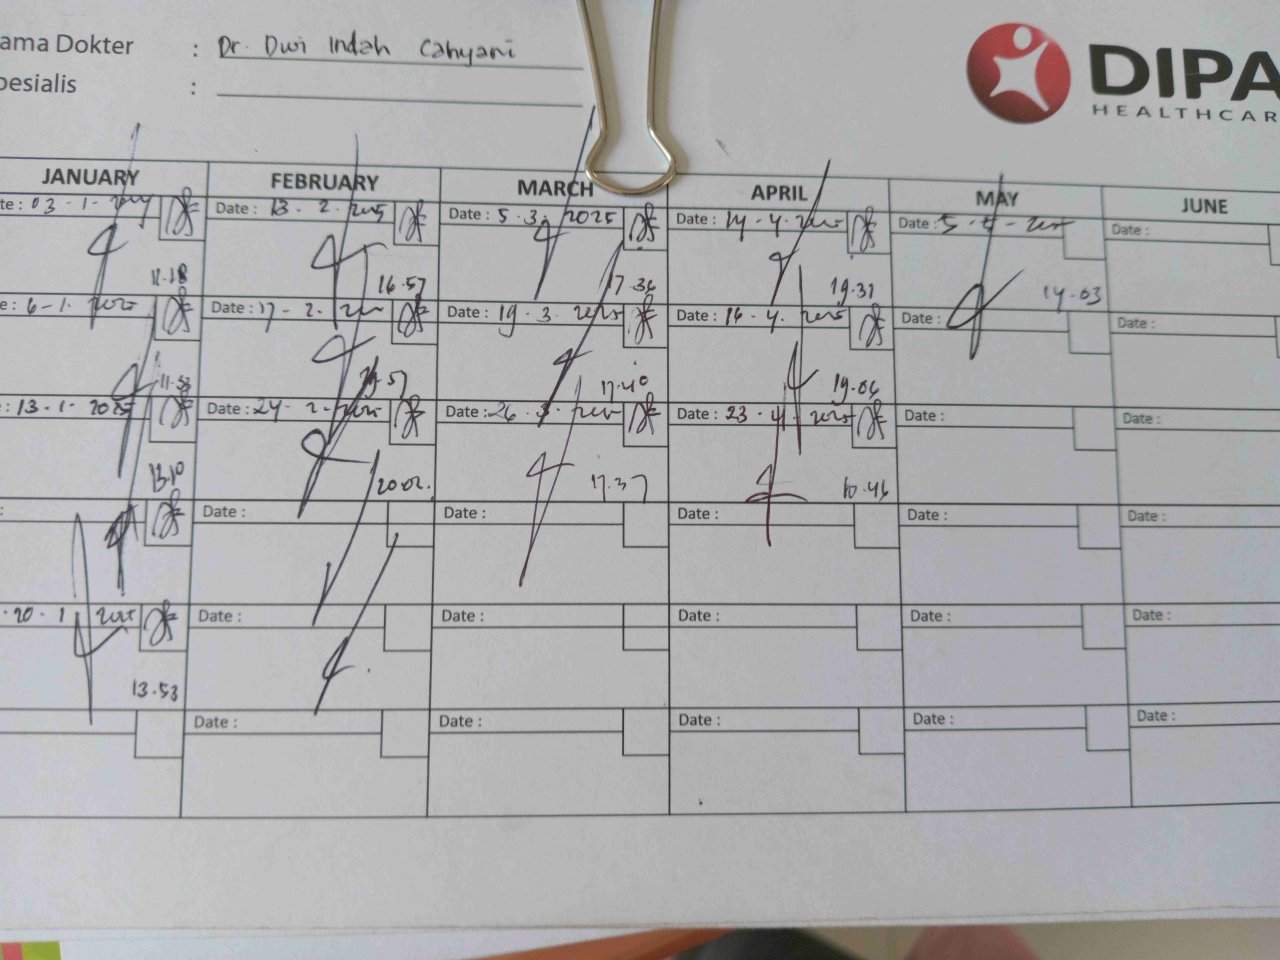 ama Dokter : Dr. Dwi Indah Cahyani
pesialis :
DIPA
HEALTHCAR
JANUARY FEBRUARY MARCH APRIL MAY JUNE
te: 03 - 1 - Date : 13 - 2 - 2025 Date : 5 - 3 - 2025 Date : 14 - 4 - 2025 Date : 5 - 5 - 2025 Date :
11.18 16.57 17.36 19.31 14.03
e: 6 - 1 - 2025 Date : 17 - 2 - 2025 Date : 19 - 3 - 2025 Date : 16 - 4 - 2025 Date : Date :
11.53 17.40 19.06
: 13 - 1 - 2025 Date : 24 - 2 - 2025 Date : 26 - 3 - 2025 Date : 23 - 4 - 2025 Date : Date :
13.10 20.02. 17.37 10.46
: Date : Date : Date : Date : Date :
20 - 1 2025 Date : Date : Date : Date : Date :
13.53
Date : Date : Date : Date : Date :